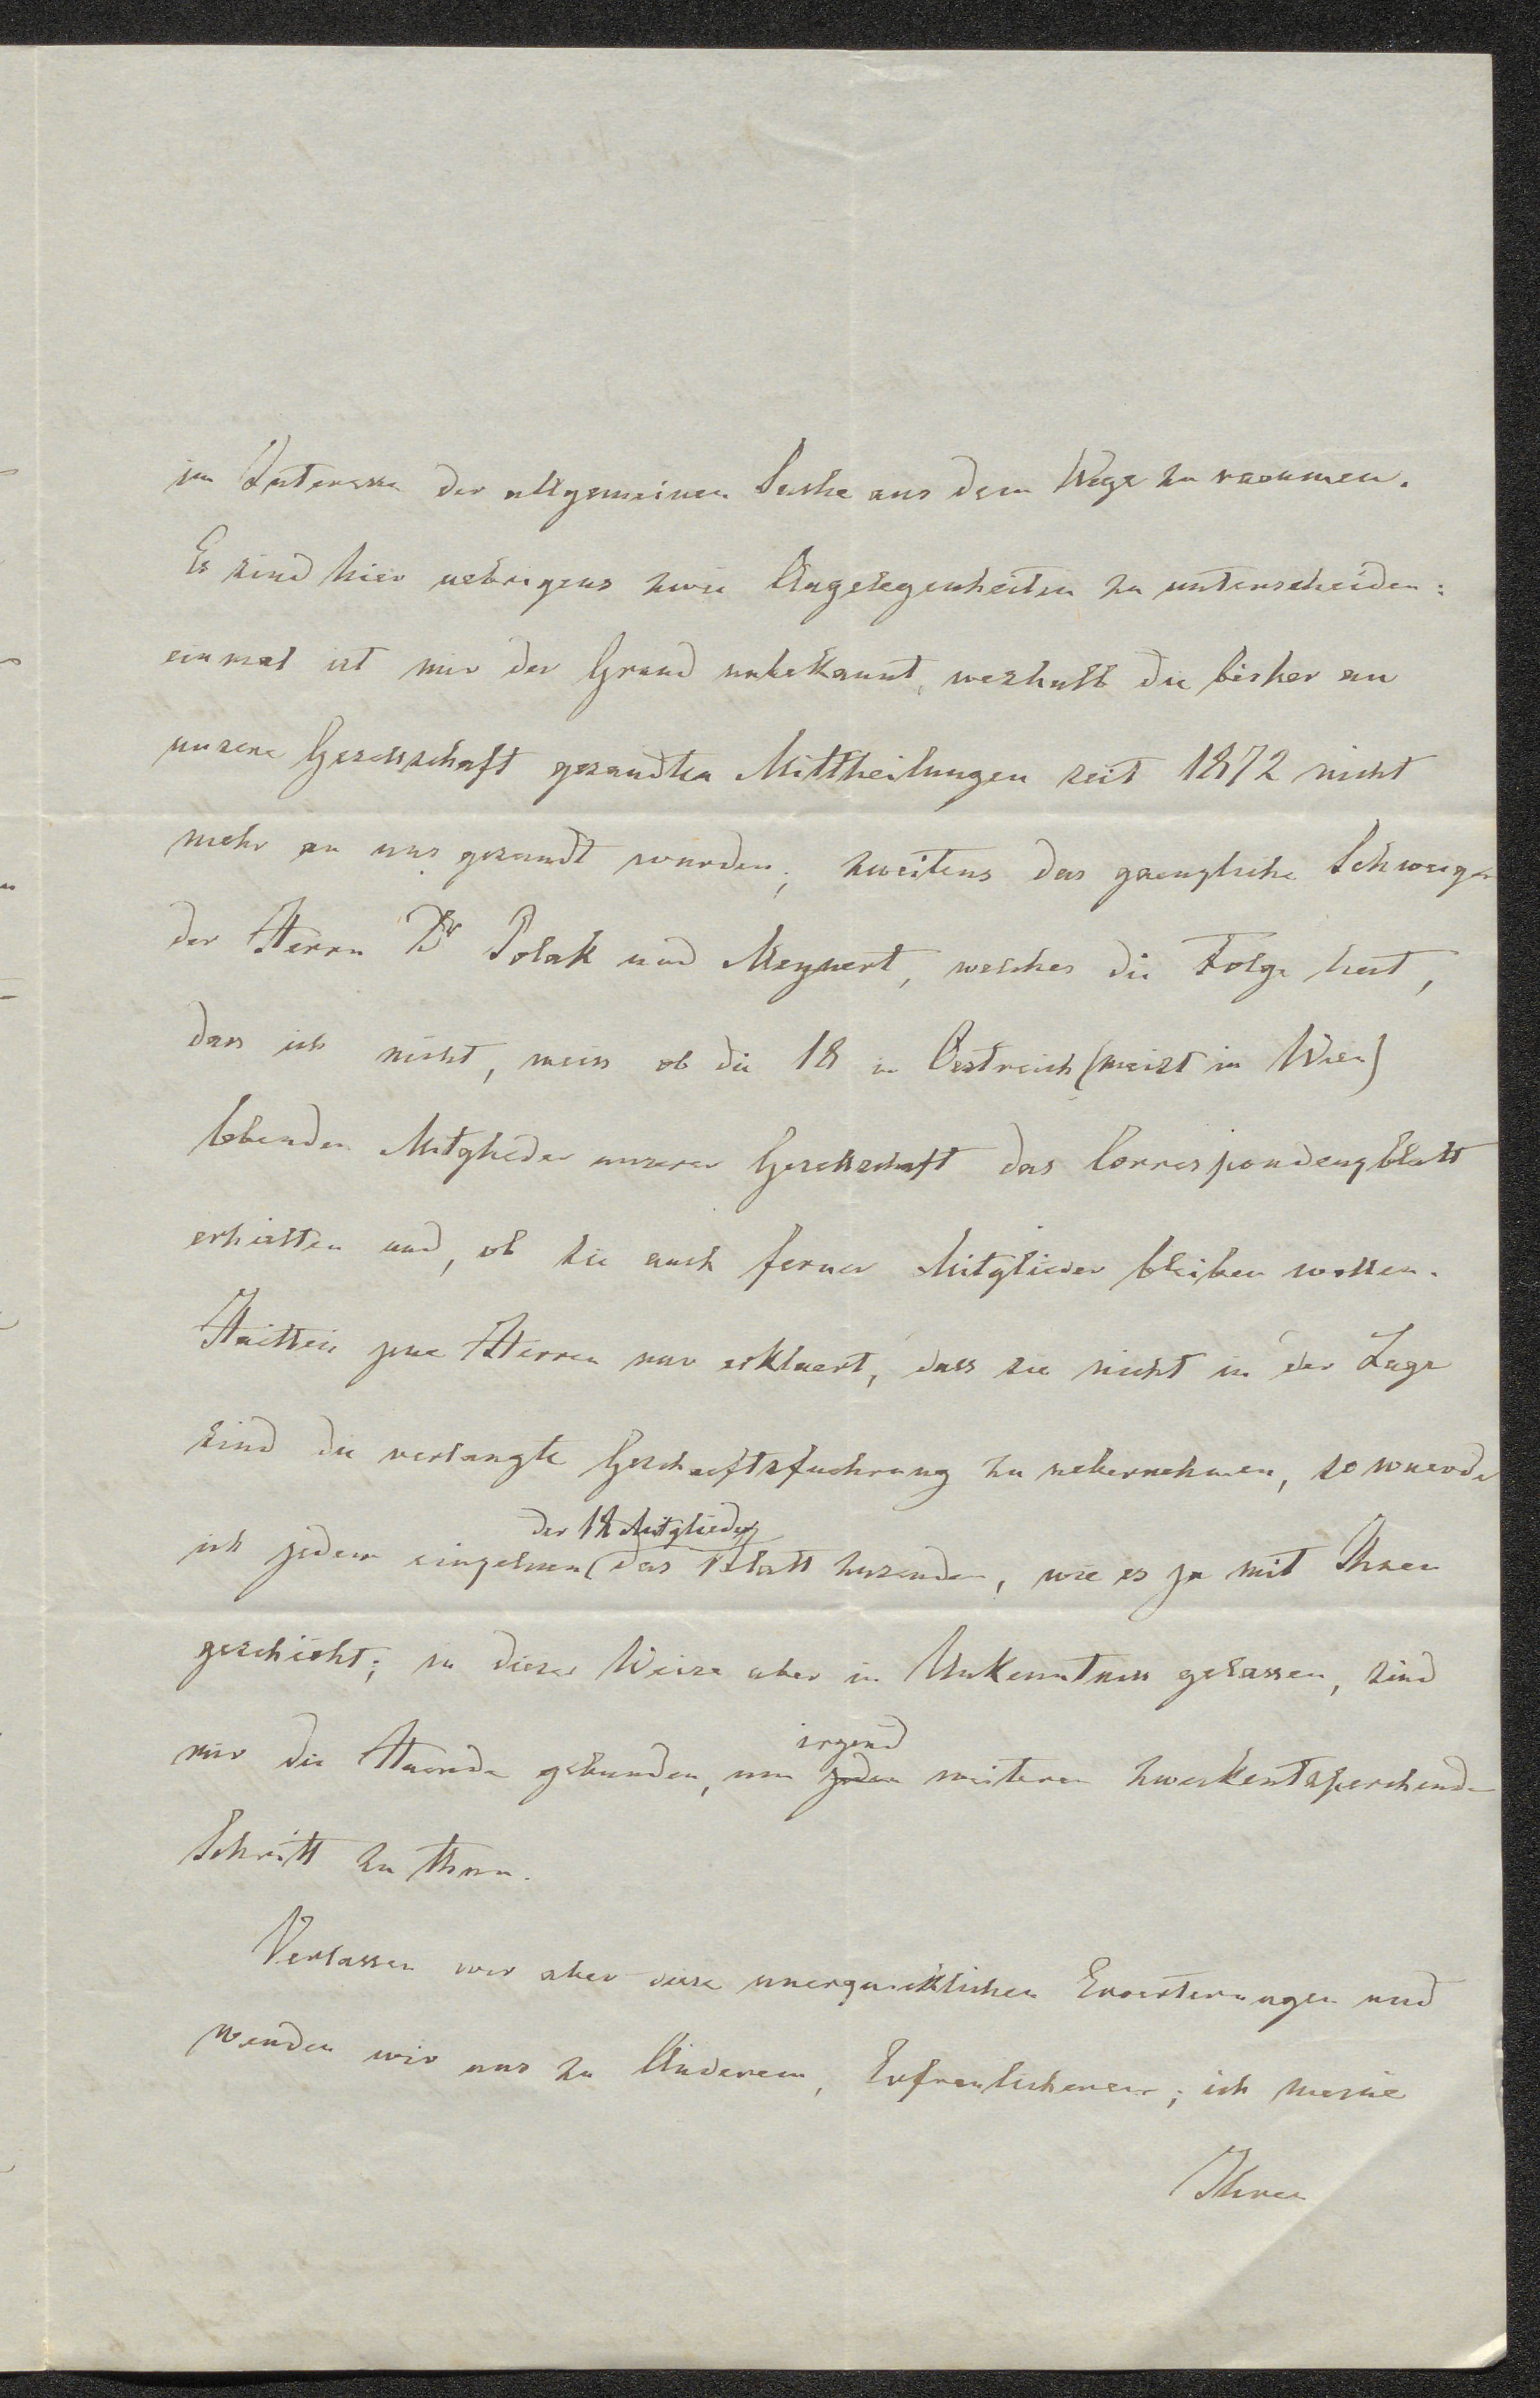 im Interesse der allgemeinen Sache aus dem Wege zu raeumen.
Es sind hier uebrigens zwei Angelegenheiten zu unterscheiden:
einmal ist mir der Grund unbekannt, weshalb die bisher an
unsere Gesellschaft gesandten Mittheilungen seit 1872 nicht
mehr an uns gesandt wurden; zweitens das gaenzliche Schweigen
der Herrn Dr Polak und Meynert, welches die Folge hat,
dass ich nicht, weiss ob die 18 in Oestreich (meist in Wien)
lebenden Mitglieder unserer Gesellschaft das Correspondenzblatt
erhielten und, ob sie auch ferner Mitglieder bleiben wollen.
Haetten jene Herren nur erklaert, dass sie nicht in der Lage
sind die verlangte Geschaeftsfuehrung zu uebernehmen, so wuerde
der 18 Mitglieder
ich jedem einzelnen das Blatt zusenden, wie es ja mit Ihnen
geschieht; in dieser Weise aber in Unkenntniss gelassen, sind
irgend
mir die Haende gebunden, um jeden weiteren zweckentsprechenden
Schritt zu thun.
Verlassen wir aber diese unerquicklichen Eroerterungen und
wenden wir uns zu Anderem, Erfreulicherem; ich meine
Ihren